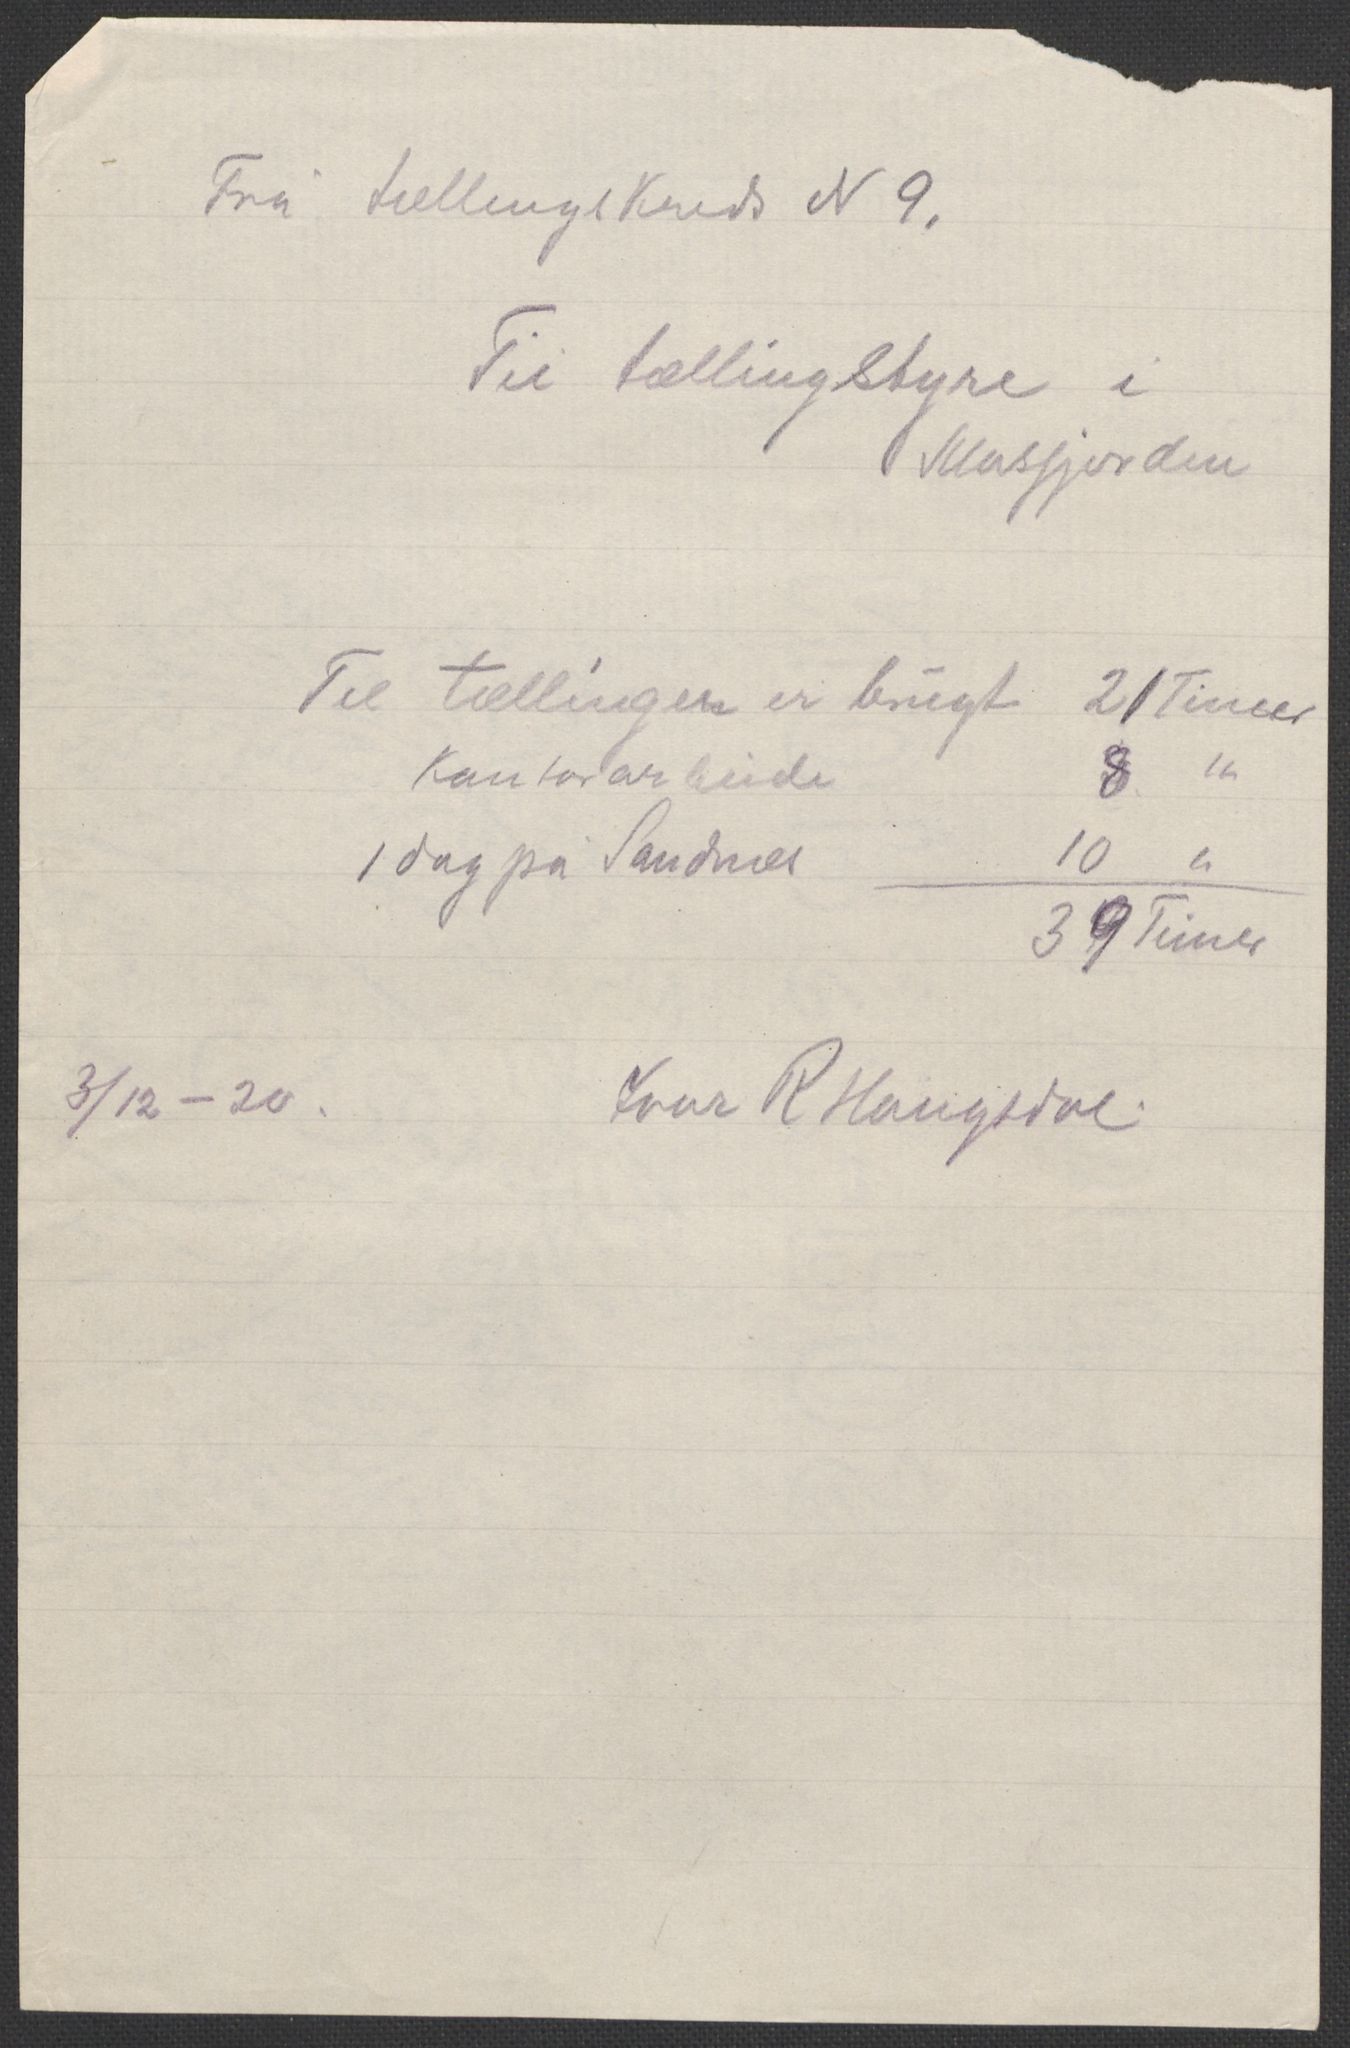 Frå tællingskreds N 9.
Til tællingstyre i
Masfjorden
Til tællingen er brugt 21 Timer
Kontorarbeide 8 "
1 dag på Sandnes 10 "
39 Timer
3/12 - 20. Ivar R Haugsdal.